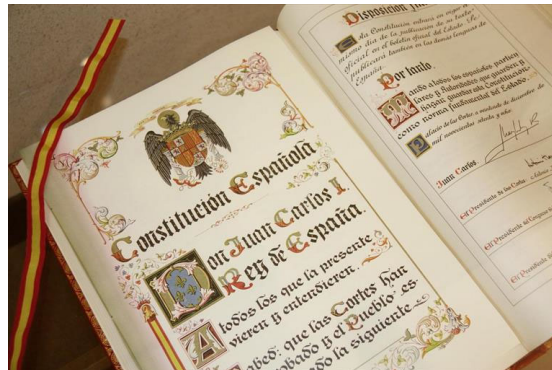 Constitución Española
Don Juan Carlos I,
Rey de España.
A todos los que la presente
vieren y entendieren.
Sabed: que las Cortes han
aprobado y el Pueblo es-
la siguiente
Disposición
Constitución entrará en vigor el
mismo día de la publicación de su texto
oficial en el boletín oficial del Estado. Se
publicará también en las demás lenguas de
España.
Por tanto,
Mando a todos los españoles, particu-
lares y autoridades, que guarden y
hagan guardar esta Constitución
como norma fundamental del Estado.
Palacio de las Cortes, a
de diciembre de
mil novecientos setenta y ocho.
Juan Carlos
El Presidente de las Cortes
El Presidente del Congreso
El Presidente del